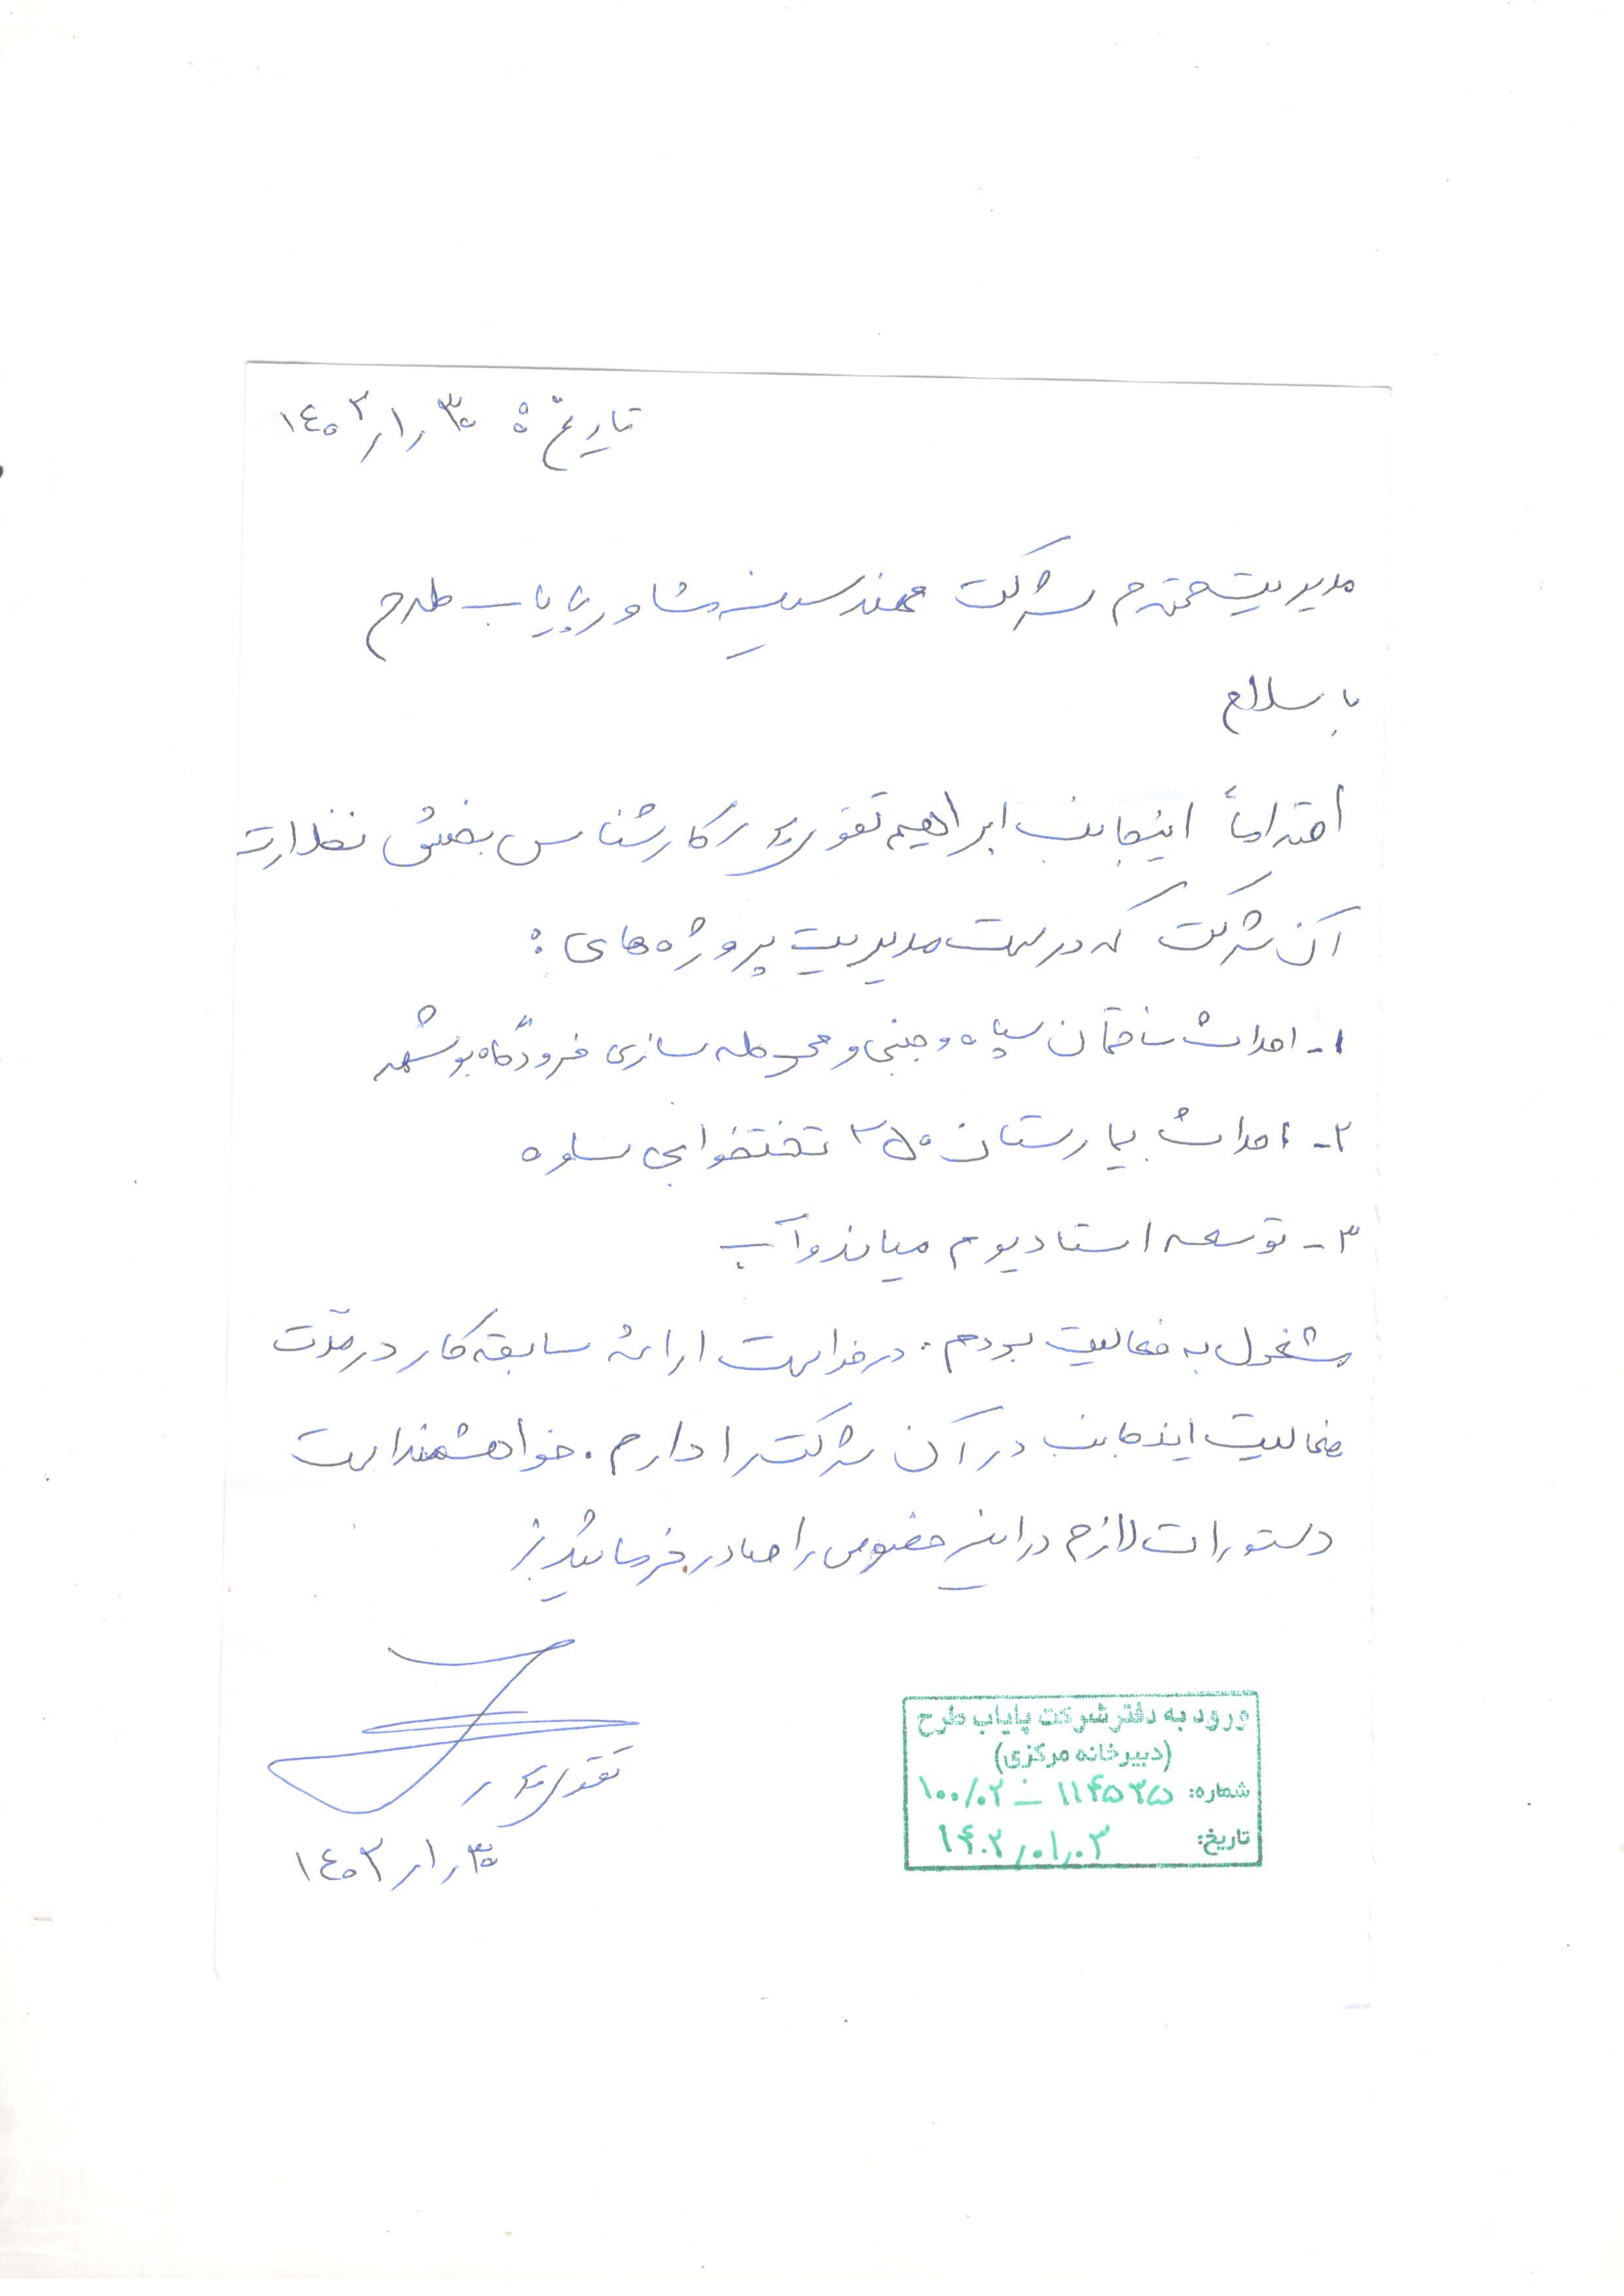 تاریخ: ۱۴۰۲/۱/۳۰
مدیریت محترم شرکت مهندسین مشاور پایاب طرح
با سلام
احتراماً اینجانب ابراهیم تقوی کارشناس بخش نظارت
آن شرکت که در سمت مدیریت پروژه‌های :
۱- احداث ساختمان سپاه و جنبی و محوطه سازی فرودگاه بوشهر
۲- احداث بیمارستان ۳۵۰ تختخوابی ساوه
۳- توسعه استادیوم میاندوآب
مشغول به فعالیت بودم. درخواست ارائهٔ سابقه کار در مدّت
فعالیت اینجانب در آن شرکت را دارم. خواهشمند است
دستورات لازم در این خصوص را صادر فرمائید
۱۴۰۲/۱/۳۰
ورود به دفتر شرکت پایاب طرح
(دبیرخانه مرکزی)
شماره: ۱۱۴۵۳۵ – ۱۰۰/۰۲
تاریخ: ۱۴۰۲/۰۱/۰۳